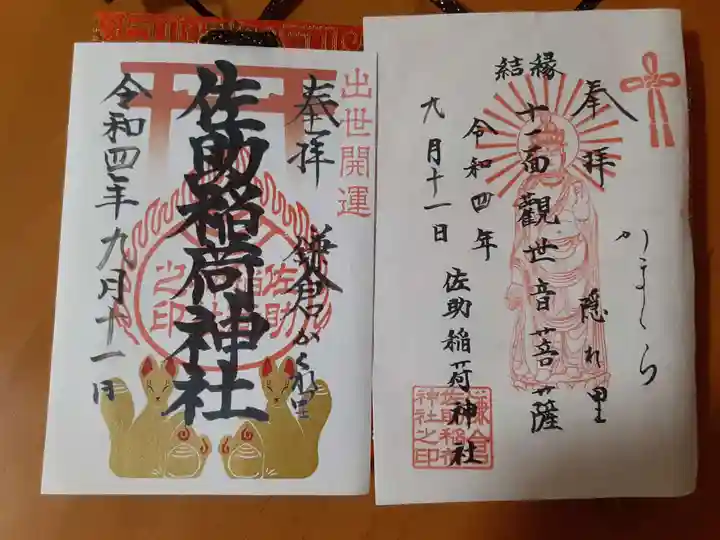 出世開運
奉拝
鎌倉かくれ里
佐助稲荷神社
令和四年九月十一日
佐助稲荷神社之印
奉拝
かまくら
隠れ里
結縁
十一面観世音菩薩
令和四年
九月十一日
佐助稲荷神社
鎌倉
佐助稲荷
神社之印